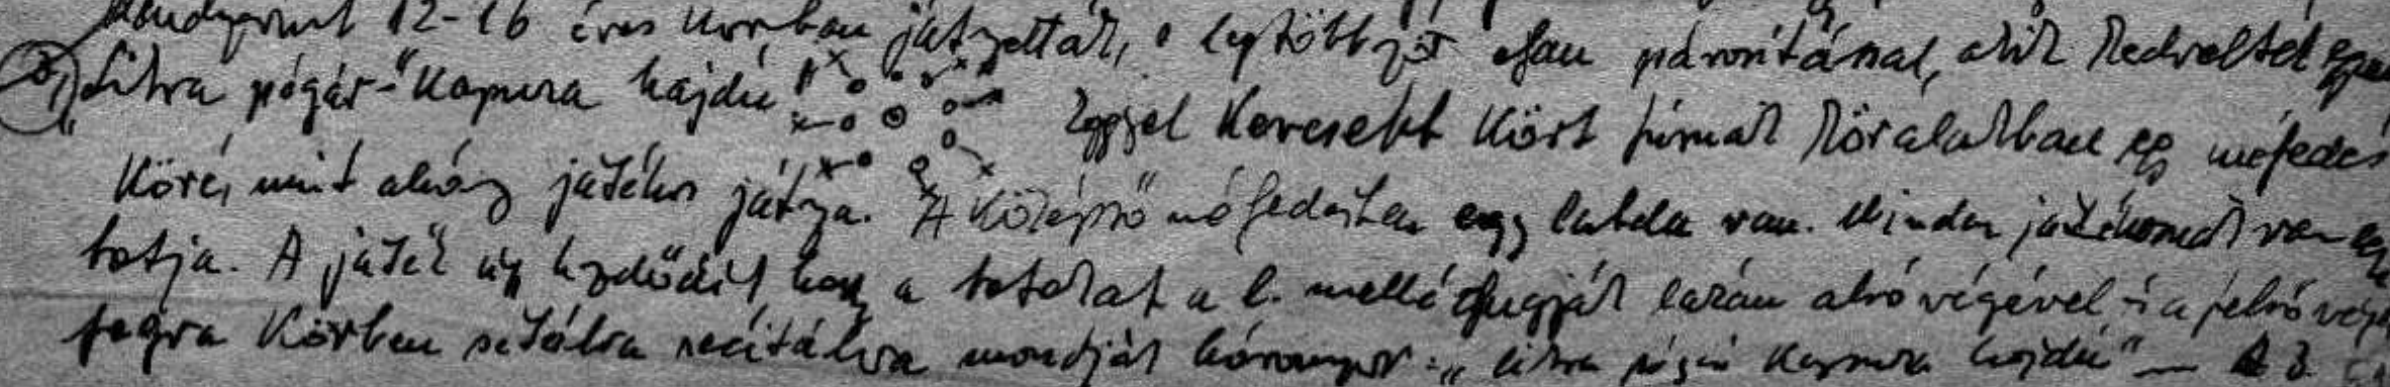 12-16 éves korban játszották, a legtöbbször csau párosítának, akik kedvelték
3, "Litra pógár-" Kapura hajdú" Eggyel kevesebb kört fúrnak köralakban egy mélyedés
köré, mint ahány játékos játsza. A középső mélyedésben egy labda van. Minden játékosnak van egy
botja. A játék úgy kezdődik, hogy a botokat a l. mellé dugják lazán alsó végével - a felső végét
fogva körben sétálva recitálva mondják háromszor: "litra pógár kapura hajdú" — A 3.